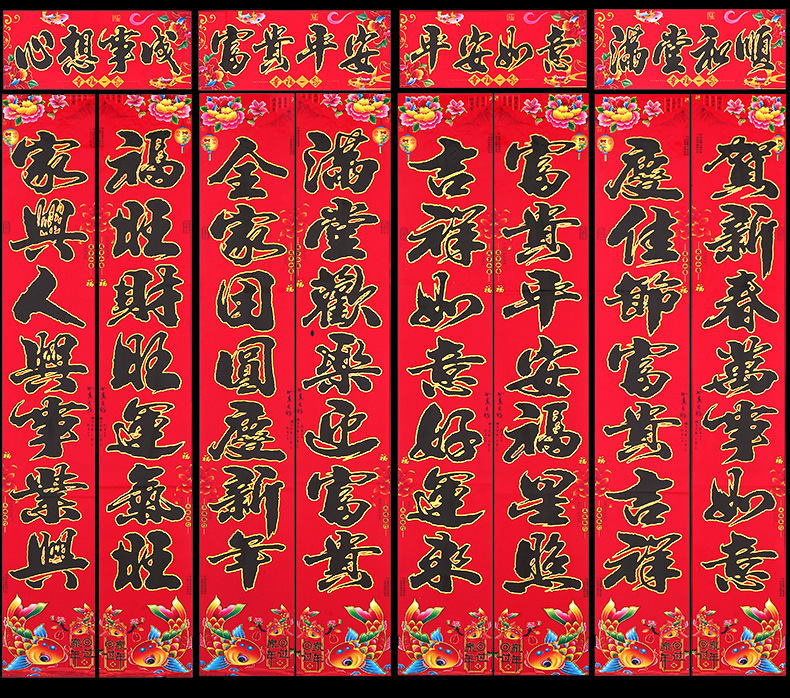 心想事成
福旺財旺運氣旺
家興人興事業興
富貴平安
滿堂歡樂迎富貴
全家团圓慶新年
平安如意
富貴平安福星照
吉祥如意好運來
滿堂和順
賀新春萬事如意
慶佳節富貴吉祥